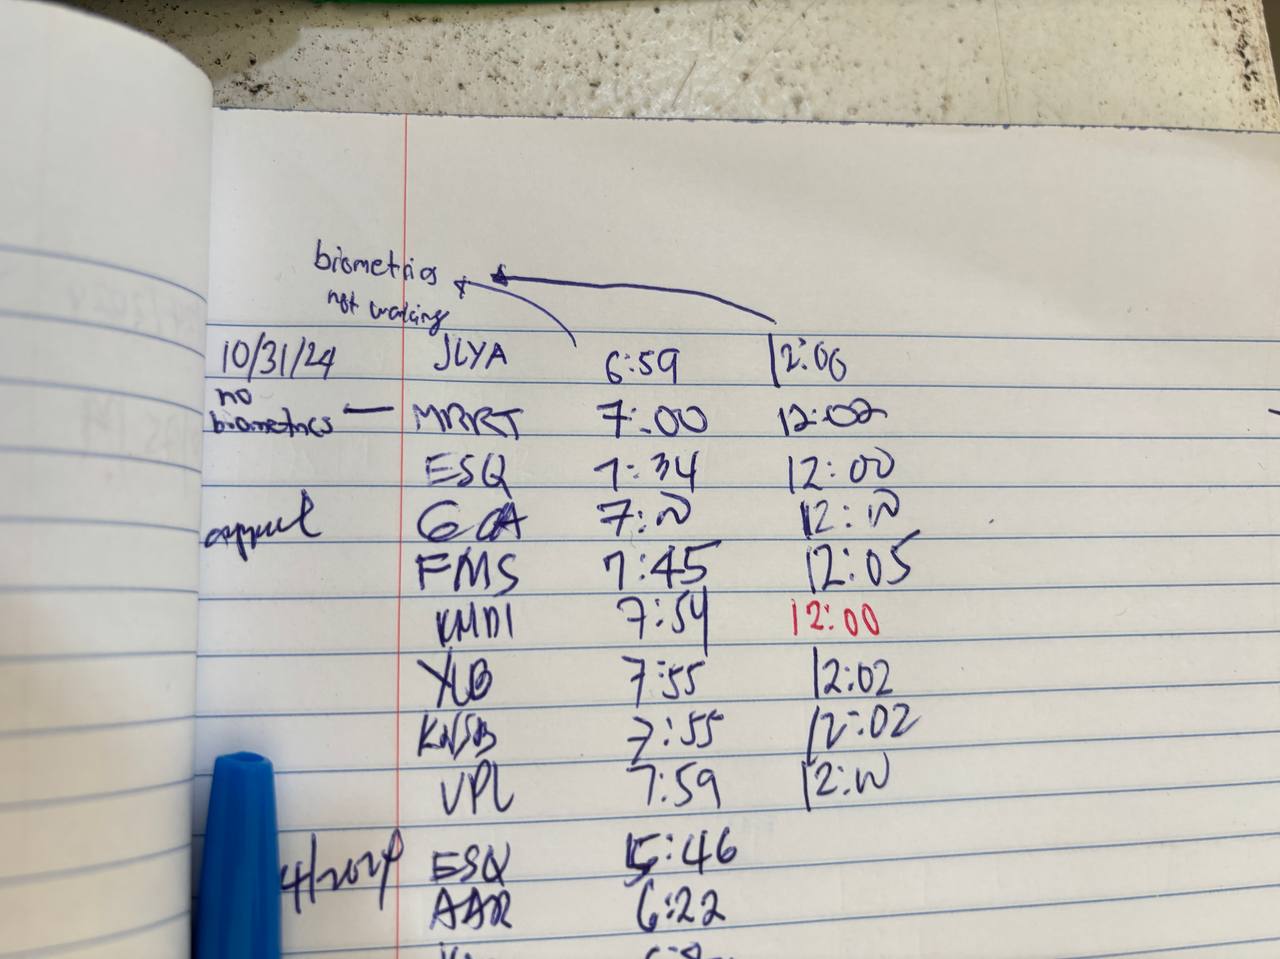 biometrics
not working
10/31/24 JLYA 6:59 12:00
no
biometrics — MRRT 7:00 12:02
ESQ 7:34 12:00
GCA
FMS 7:45 12:05
KMDI 7:54 12:00
YLB 7:55 12:02
KNSB 7:55 12:02
VPL 7:59
4/2024 ESQ 5:46
AAR 6:22